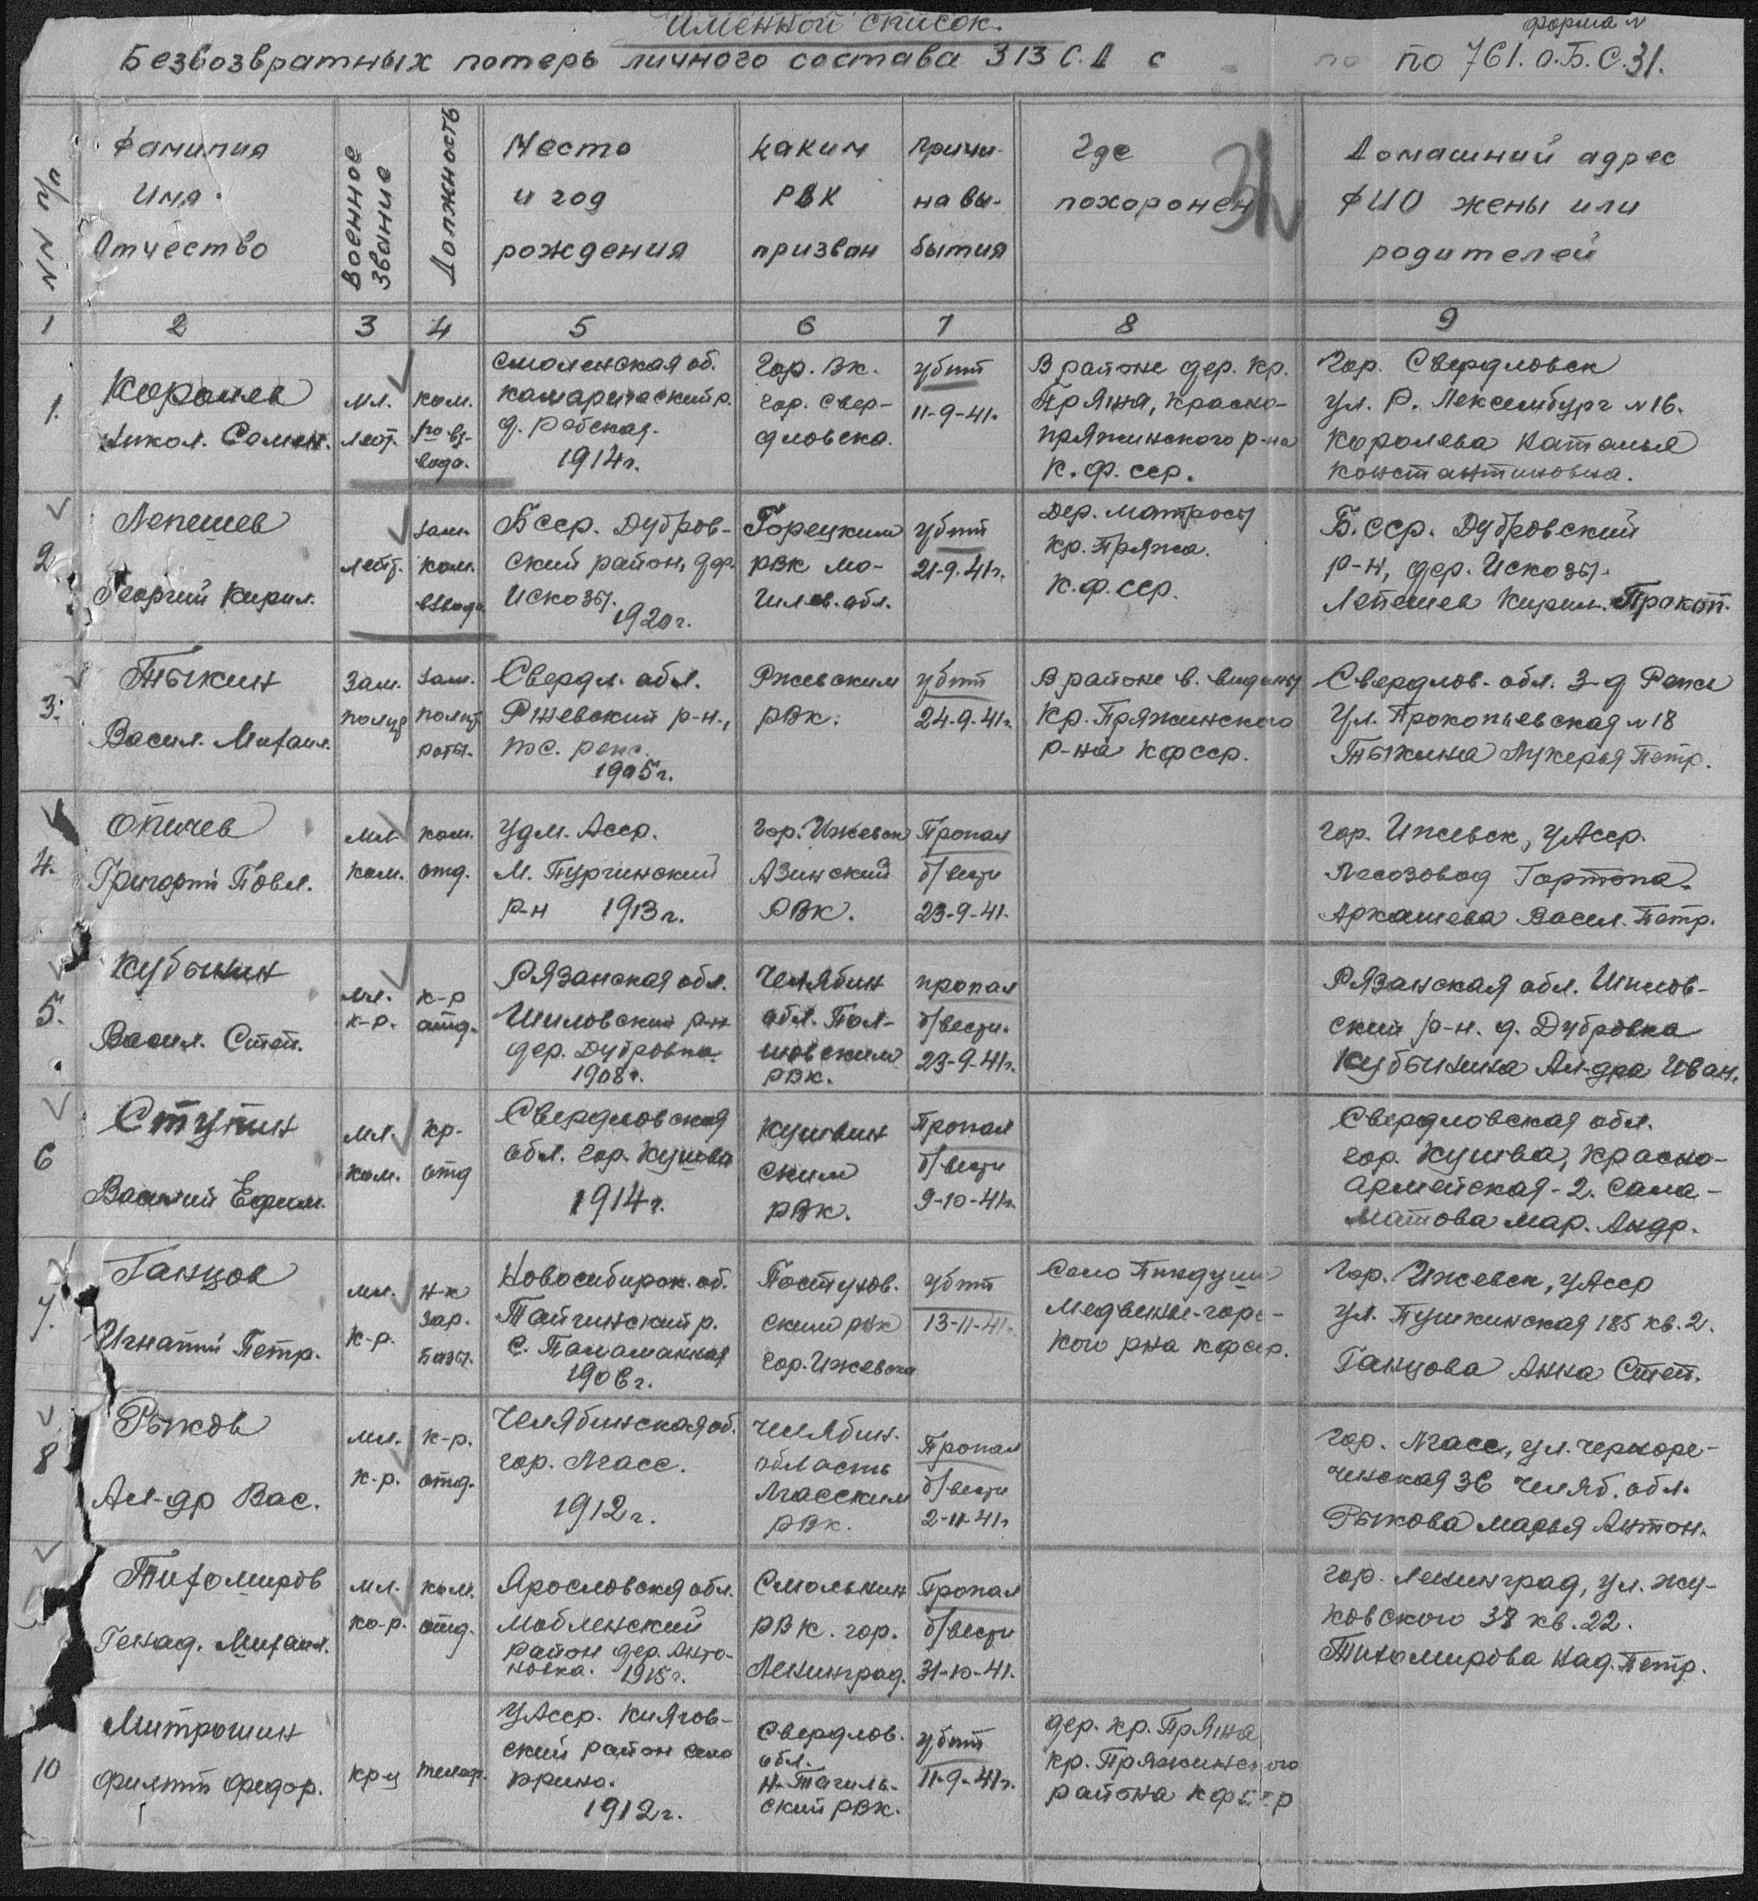 Именной список.
форма N
Безвозвратных потерь личного состава 313 С.Д с по по 761. О.Б.С. 31.
NN п/п
Фамилия
Имя
Отчество
Военное звание
Должность
Место
и год
рождения
Каким
РВК
призван
Причи-
на вы-
бытия
Где
похоронен
Домашний адрес
ФИО жены или
родителей
1 2 3 4 5 6 7 8 9
1.
Королев
Никол. Семен.
мл.
лейт.
ком.
взвода.
Смоленская об.
д. Робская.
1914г.
Гор. вк.
гор. Свер-
дловска.
убит
11-9-41.
В районе дер. Кр.
Пряжа, Красно-
пряжинского р-на
К.Ф.ССР.
Гор. Свердловск
ул. Р. Люксембург N16.
Королева Наталья
Константиновна.
2
Лепешев
Георгий Кирил.
лейт.
зам.
ком.
взвода
БССР. Дубров-
ский район, дер.
Искозы.
1920г.
Горецким
РВК Мо-
гилев. обл.
убит
21-9-41г.
Дер. Матросы
Кр. Пряжа.
К.Ф.ССР.
Б.ССР. Дубровский
р-н, дер. Искозы.
Лепешев Кирил. Прокоп.
3.
Тыкин
Васил. Михаил.
Зам.
полит
зам.
полит
роты.
Свердл. обл.
Режевский р-н.,
1905г.
Режевским
РВК.
убит
24-9-41г.
В районе в. Виданы
Кр. Пряжинского
р-на КФССР.
Свердлов. обл. З-д Режи
Ул. Прокопьевская N18
Тыкина Лукерья Петр.
4.
Опичев
Григорий Павл.
мл.
ком.
ком.
отд.
Удм. АССР.
М. Пургинский
р-н 1913г.
Гор. Ижевск
Азинский
РВК.
Пропал
б/вести
23-9-41.
гор. Ижевск, УАССР.
Лесозавод Гортопа.
Аркашева Васил. Петр.
5.
Кубынин
Васил. Степ.
мл.
к-р.
к-р
отд.
Рязанская обл.
Шиловский р-н
дер. Дубровка
1908г.
Челябин
обл. Пол-
товским
РВК.
пропал
б/вести.
23-9-41г.
Рязанская обл. Шилов-
ский р-н. д. Дубровка
Кубынина Ал-дра Иван.
6
Ступин
Василий Ефим.
мл.
ком.
кр.
отд
Свердловская
обл. гор. Кушва
1914г.
Кушвин
ским
РВК.
Пропал
б/вести
9-10-41г.
Свердловская обл.
гор. Кушва, Красно-
армейская-2. Сала-
матова Мар. Андр.
7.
Ганцов
Игнатий Петр.
мл.
к-р.
н-к
зар.
базы.
Новосибирск. об.
Тайгинский р.
1906г.
Пастухов.
ским РВК
гор. Ижевска
убит
13-11-41.
Село Пиндуши
Медвежье-горс-
кого рна КФССР.
Гор. Ижевск, УАССР
ул. Пушкинская 185 кв. 2.
Ганцова Анна Степ.
8
Рыков
Ал-др Вас.
мл.
к-р.
к-р.
отд.
Челябинская об.
гор. Миасс.
1912г.
Челябин.
область
Миасским
РВК.
Пропал
б/вести
2-11-41г
гор. Миасс, ул. Черноре-
ченская 36 Челяб. обл.
Рыкова Марья Антон.
Тихомиров
Генад. Михаил.
мл.
ко-р.
ком.
отд.
Ярославская обл.
район дер. Анто-
новка. 1915г.
Смольнин
РВК. гор.
Ленинград.
Пропал
б/вести
31-10-41.
гор. Ленинград, ул. Жу-
ковского 38 кв. 22.
Тихомирова Над. Петр.
10
Митрошин
Филипп Федор.
кр-ц
телеф.
УАССР. Киясов-
ский район село
1912г.
Свердлов.
обл.
Н-Тагиль-
ский РВК.
убит
11-9-41г.
дер. Кр. Пряжа
Кр. Пряжинского
района КФССР